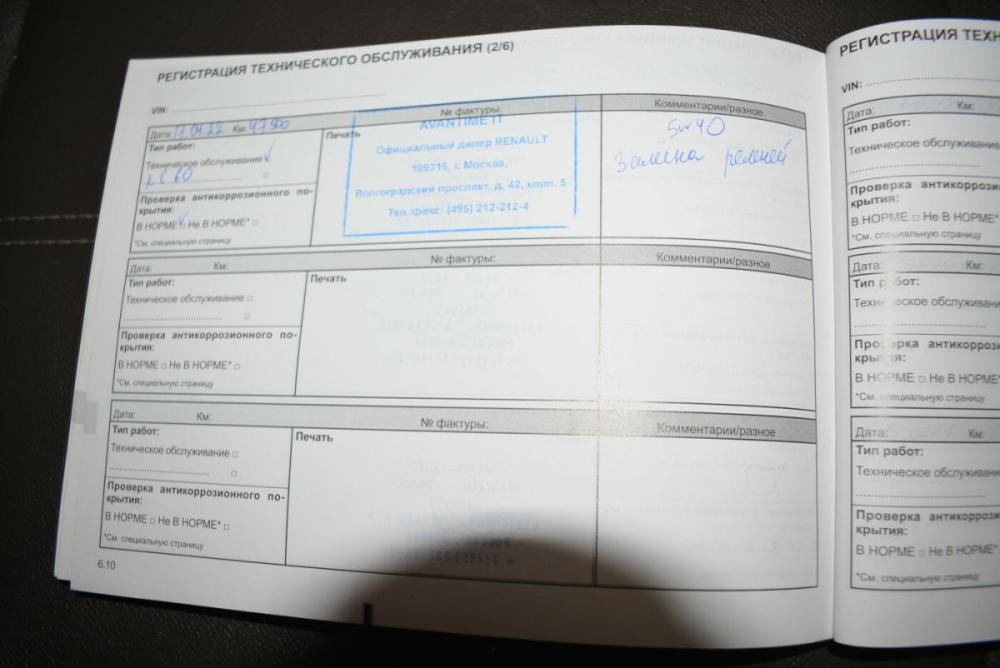 РЕГИСТРАЦИЯ ТЕХНИЧЕСКОГО ОБСЛУЖИВАНИЯ (2/6)
VIN:
Дата: 17.04.22 Км: 47900 № фактуры: Комментарии/разное
Тип работ: Печать
Техническое обслуживание
Проверка антикоррозионного по-
крытия:
В НОРМЕ □ Не В НОРМЕ* □
*См. специальную страницу
AVANTIME IT
Официальный дилер RENAULT
109316, г. Москва,
Волгоградский проспект, д. 42, корп. 5
Тел./факс: (495) 212-212-4
5w40
Замена ремней
Дата: Км: № фактуры: Комментарии/разное
Тип работ: Печать
Техническое обслуживание □
□
Проверка антикоррозионного по-
крытия:
В НОРМЕ □ Не В НОРМЕ* □
*См. специальную страницу
Дата: Км: № фактуры: Комментарии/разное
Тип работ: Печать
Техническое обслуживание □
□
Проверка антикоррозионного по-
крытия:
В НОРМЕ □ Не В НОРМЕ* □
*См. специальную страницу
6.10
РЕГИСТРАЦИЯ ТЕХН
VIN:
Дата: Км:
Тип работ:
Техническое обслуживание
Проверка антикоррози
крытия:
В НОРМЕ □ Не В НОРМЕ*
*См. специальную страницу
Дата: Км:
Тип работ:
Техническое обслуживание
Проверка антикоррози
крытия:
В НОРМЕ □ Не В НОРМЕ*
*См. специальную страницу
Дата: Км:
Тип работ:
Техническое обслуживани
Проверка антикоррозион
крытия:
В НОРМЕ □ Не В НОРМЕ*
*См. специальную страницу